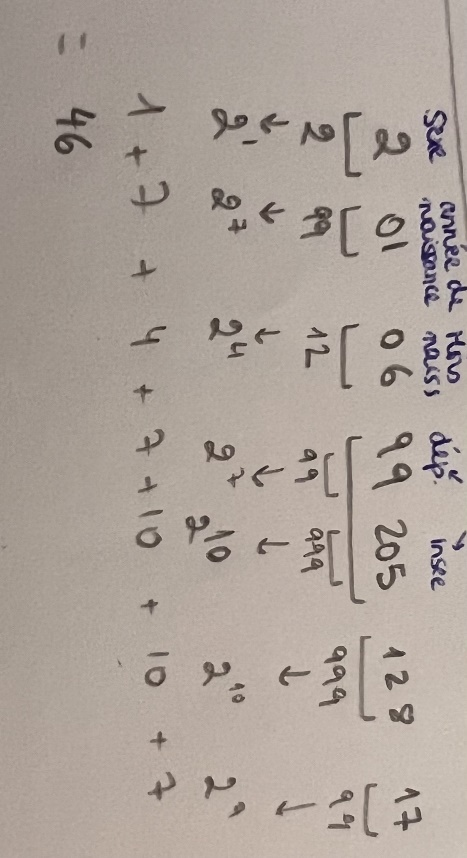 Sexe année de naissance Mois naiss dép. insee
2 01 06 99 205 128 17
2 99 12 99 999 999 99
↓ ↓ ↓ ↓ ↓ ↓ ↓
2¹ 2⁷ 2⁴ 2⁷ 2¹⁰ 2¹⁰ 2⁷
1 + 7 + 4 + 7 + 10 + 10 + 7
= 46